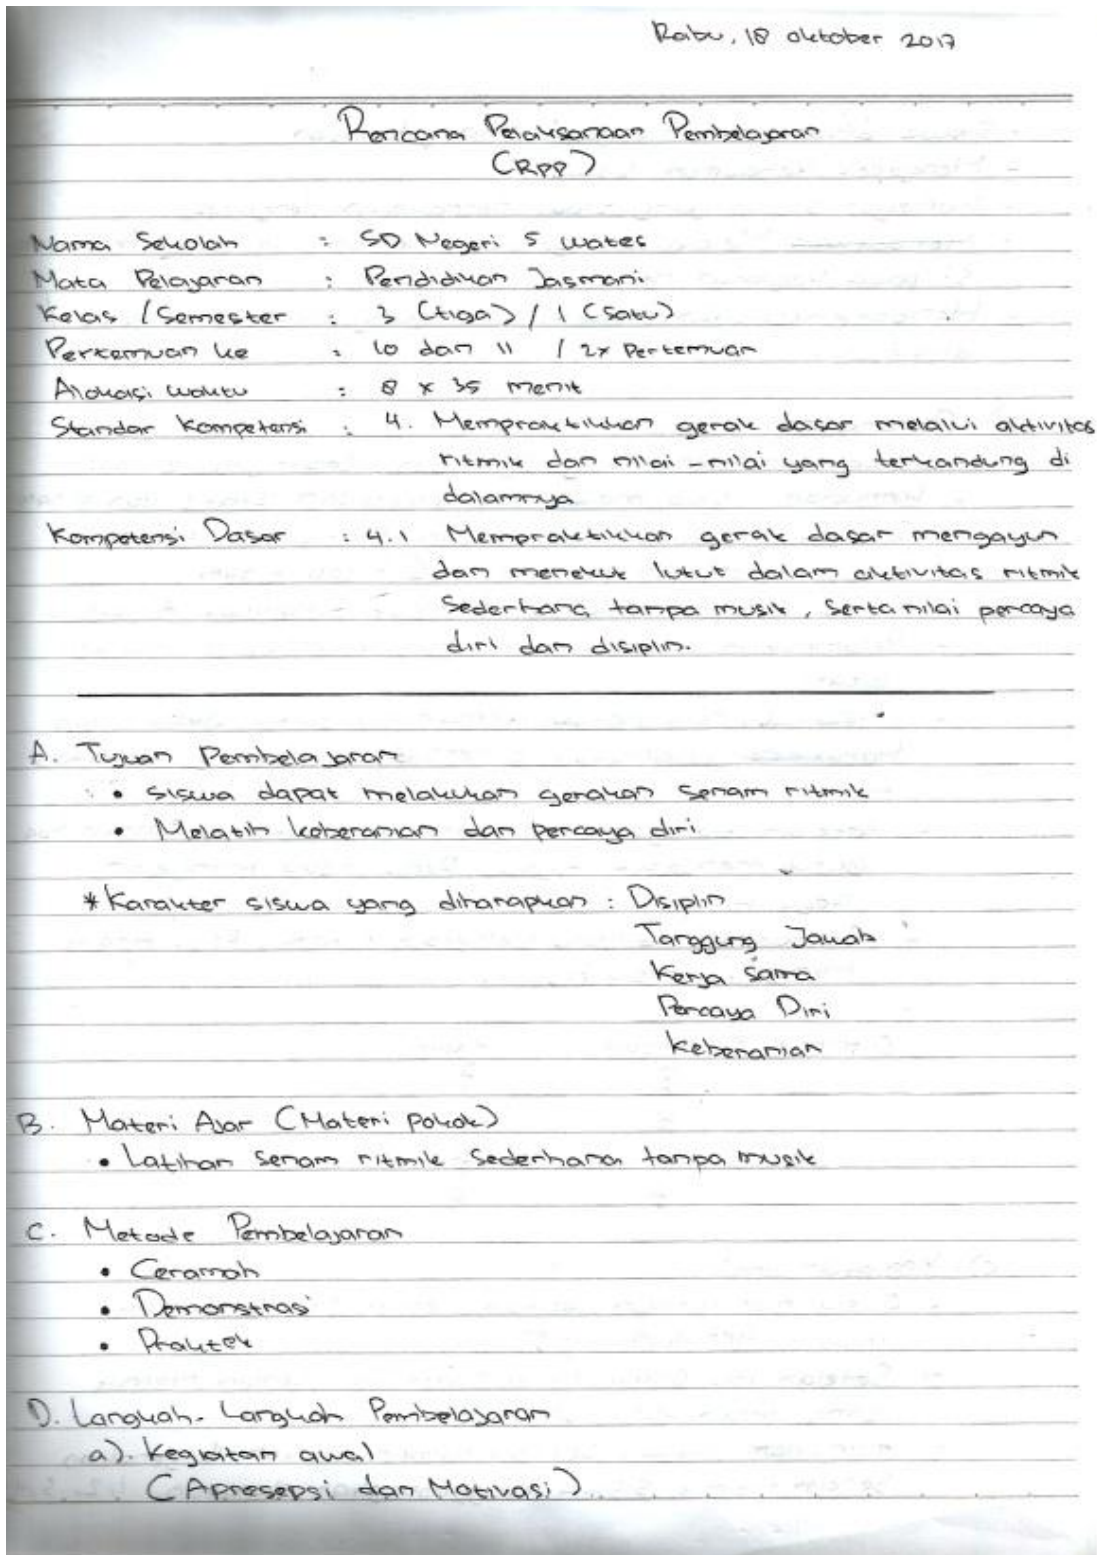 Rabu, 18 oktober 2017
Rencana Pelaksanaan Pembelajaran
(RPP)
Nama Sekolah : SD Negeri 5 Wates
Mata Pelajaran : Pendidikan Jasmani
Kelas / Semester : 3 (tiga) / 1 (Satu)
Pertemuan ke : 10 dan 11 / 2x Pertemuan
Alokasi waktu : 8 x 35 menit
Standar Kompetensi : 4. Mempraktikkan gerak dasar melalui aktivitas
ritmik dan nilai-nilai yang terkandung di
dalamnya
Kompetensi Dasar : 4.1 Mempraktikkan gerak dasar mengayun
dan menekuk lutut dalam aktivitas ritmik
Sederhana tanpa musik, serta nilai percaya
diri dan disiplin.
A. Tujuan Pembelajaran
• siswa dapat melakukan gerakan senam ritmik
• Melatih keberanian dan percaya diri
* Karakter siswa yang diharapkan : Disiplin
Tanggung Jawab
Kerja Sama
Percaya Diri
keberanian
B. Materi Ajar (Materi Pokok)
• Latihan senam ritmik sederhana tanpa musik
C. Metode Pembelajaran
• Ceramah
• Demonstrasi
• Praktek
D. Langkah-Langkah Pembelajaran
a). Kegiatan awal
(Apresepsi dan Motivasi)